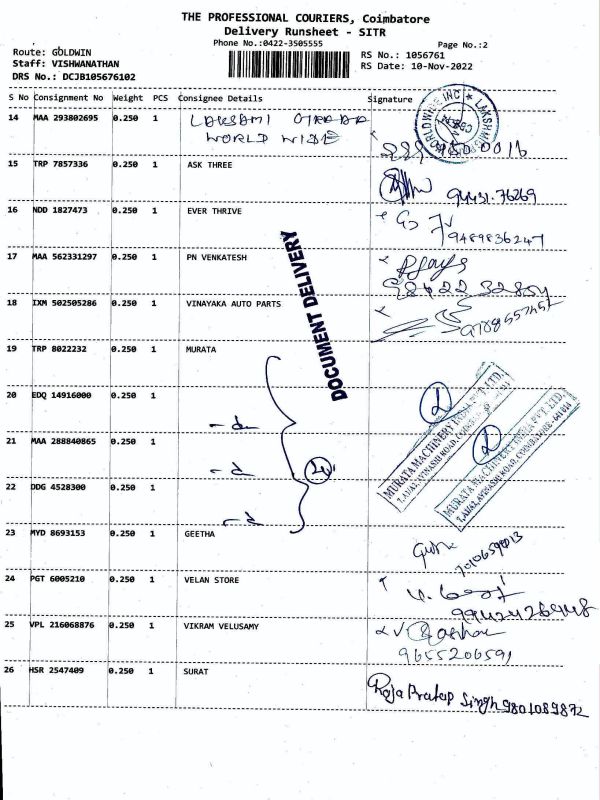 THE PROFESSIONAL COURIERS, Coimbatore
Delivery Runsheet - SITR
Phone No.:0422-3505555
Page No.:2
Route: GOLDWIN
Staff: VISHWANATHAN
DRS No.: DCJB105676102
RS No.: 1056761
RS Date: 10-Nov-2022
S No Consignment No Weight PCS Consignee Details Signature
14 MAA 293802695 0.250 1 LAKSAMI
WORLD WIDE
15 TRP 7857336 0.250 1 ASK THREE
94431.76269
16 NDD 1827473 0.250 1 EVER THRIVE
9489836247
17 MAA 562331297 0.250 1 PN VENKATESH
98422 32854
18 IXM 502505286 0.250 1 VINAYAKA AUTO PARTS
DOCUMENT DELIVERY
19 TRP 8022232 0.250 1 MURATA
20 EDQ 14916000 0.250 1
21 MAA 288840865 0.250 1
22 DDG 4528300 0.250 1
MURATA MACHINERY INDIA PVT. LTD.
MURATA MACHINERY INDIA PVT. LTD.
23 MYD 8693153 0.250 1 GEETHA
24 PGT 6005210 0.250 1 VELAN STORE
25 VPL 216068876 0.250 1 VIKRAM VELUSAMY
9655206591
26 HSR 2547409 0.250 1 SURAT
Raja Pratap Singh 9801089872